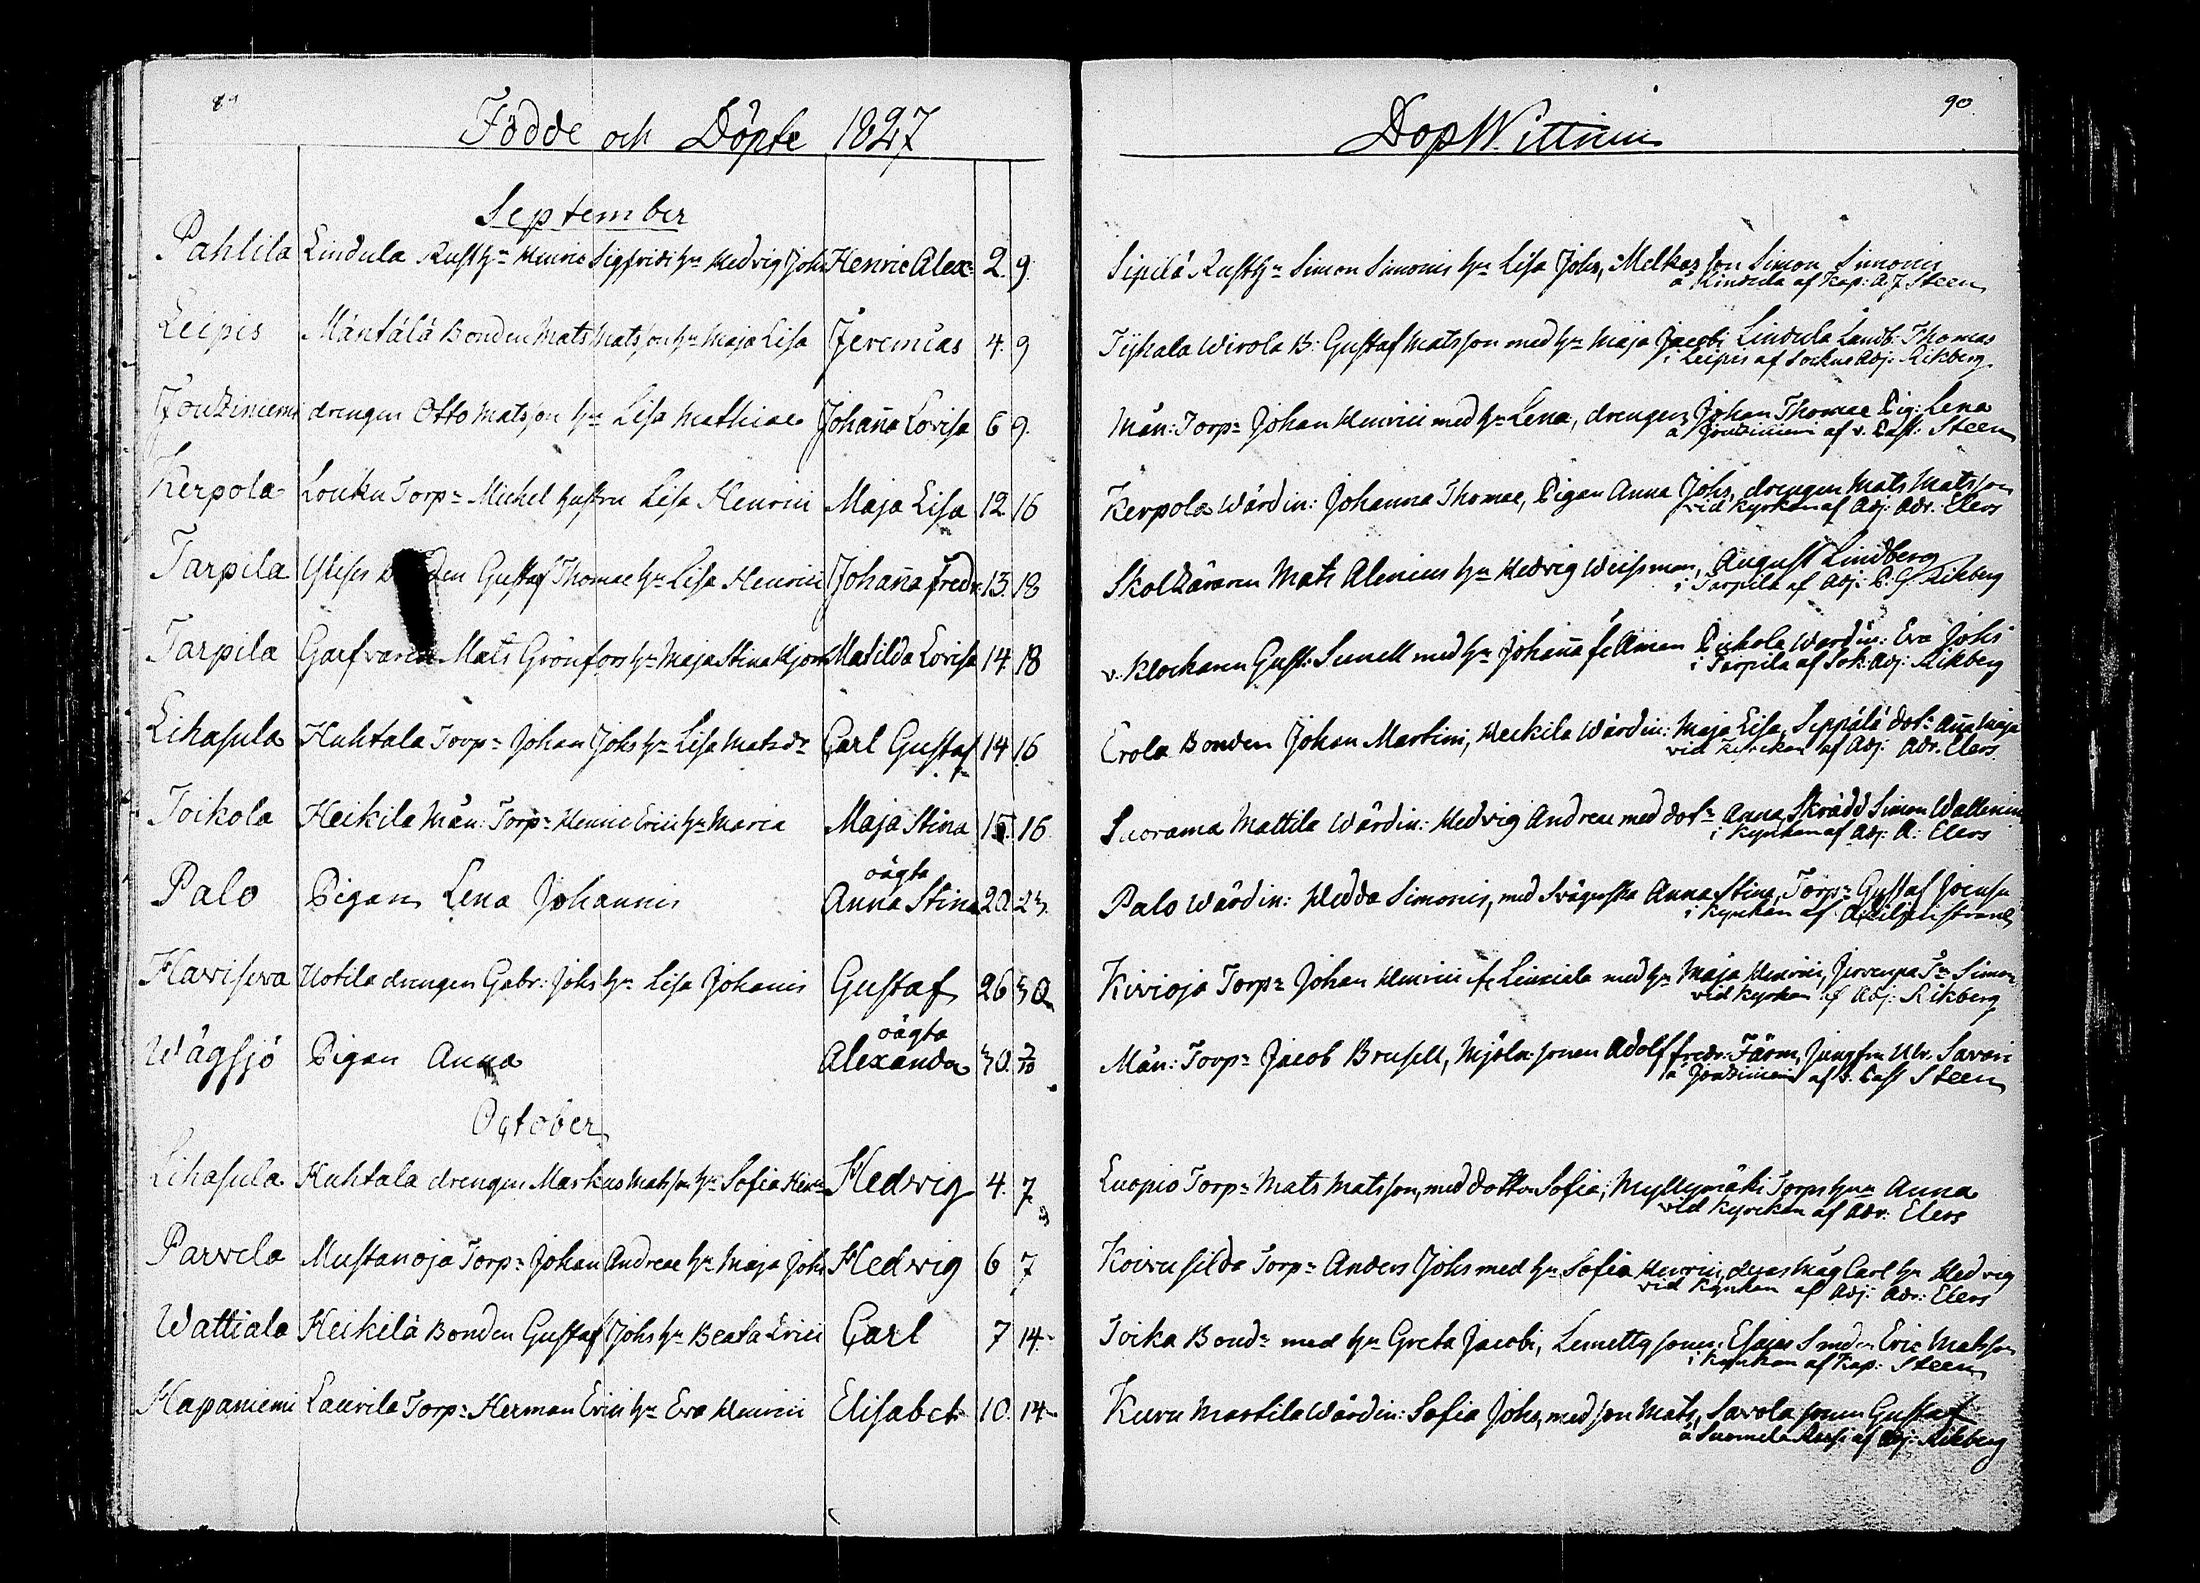 Födde och Döpte 1827
September
Pahlila Lindula Rusth:n Henric Sigfridi h:u Hedvig Johs Henric Alex: 2. 9.
Leipis Mäntälä Bonden Mats Matsson h:u Maja Lisa Jeremias 4. 9
Joutziniemi drengen Otto Matsson h:u Lisa Mathiae Johan̄a Lovisa 6 9.
Kerpola Louku Torp:n Michel hustru Lisa Henrici Maja Lisa 12 16
Tarpila Gustaf Thomae h:u Lisa Henrici Johan̄a Fredr: 13. 18
Tarpila Garfvaren Mats Grönfors h:u Maja Stina Matilda Lovisa 14 18
Lihasula Huhtala Torp:n Johan Johs h:u Lisa Matsd:r Carl Gustaf 14 16
Toikola Heikila Mån: Torp:n Henric Erici h:u Maria Maja Stina 15 16
oägta
Palo Pigan Lena Johannis Anna Stina 20. 23.
Havisева Uotila drengen Gabr: Johs h:u Lisa Johanis Gustaf 26 30
oägta
Wågsjö Pigan Anna Alexanda 30.
October
Lihasula Huhtala drengen Markus Matsson h:u Sofia Hen: Hedwig 4. 7.
Parvela Mustanoja Torp:n Johan Andreae h:u Maja Johs Hedwig 6 7
Wattiala Heikilä Bonden Gustaf Johs h:u Beata Erici Carl 7 14.
Hapaniemi Laurila Torp:n Herman Erici h:u Eva Henrici Elisabet 10. 14
90.
Dop Wittnen
Sipilä Rusth:n Simon Simonis h:u Lisa Johs, Melkas son Simon Simonis
å Lindula af Kap: A. J. Steen
Wirola B: Gustaf Matsson med h:u Maja Jacobi Lindula Landb: Thomas
i Leipis af Adj: Rikberg
Mån: Torp:n Johan Henrici med h:u Lena, drengen Johan Thomae Pig: Lena
å Joutziniemi af v. Past: Steen
Kerpola Wärdin: Johanna Thomae, Pigan Anna Johs, drengen Mats Matsson
vid Kyrkan af Adj: Adr. Elers
Mats Alenius h:u Hedvig Weisman, August Lindberg
i Tarpila af Adj: Rikberg
v: Klockaren Gust: Sunell med h:u Johan̄a Fellman Wärdin: Eva Johs
i Tarpila af Sok: Adj: Rikberg
Erola Bonden Johan Martini, Heikila Wärdin: Maja Lisa, Seppälä dot:r An̄a Maja
vid Kyrckan af Adj: Adr. Elers.
Suorama Mattila Wärdin: Hedvig Andreae med dot:r Anna, Skrädd Simon Wallenius
i Kyrkan af Adj: A: Elers
Palo Wärdin: Hedda Simonis, med Svägerska Anna Stina, Torp:n Gustaf
i Kyrckan af Liljenstrand
Kivioja Torp:n Johan Henrici med h:u Maja Henrici, Simon
vid Kyrkan af Adj: Rikberg
Mån: Torp:n Jacob Brusell, Mjöln: sonen Adolf Fredr: Färm, Jungfru Ulr. Savon
å Joutziniemi af v. Past Steen
Luopio Torp:n Mats Matsson, med dotter Sofia, Myllymäki Torps h:un Anna
vid Kyrckan af Adr: Elers
Koivusilda Torp:n Anders Johs med h:u Sofia Henrici, deras måg Carl h:u Hedvig
vid Kyrkan af Adj: Adr: Elers
Toika Bond:n med h:u Greta Jacobi, Lemetty sonen Esaias Eric Matsson
i Kyrkan af Kap: Steen
Kuru Martila Wärdin: Sofia Johs, med son Mats, Savola sonen Gustaf
af Adj: Rikberg